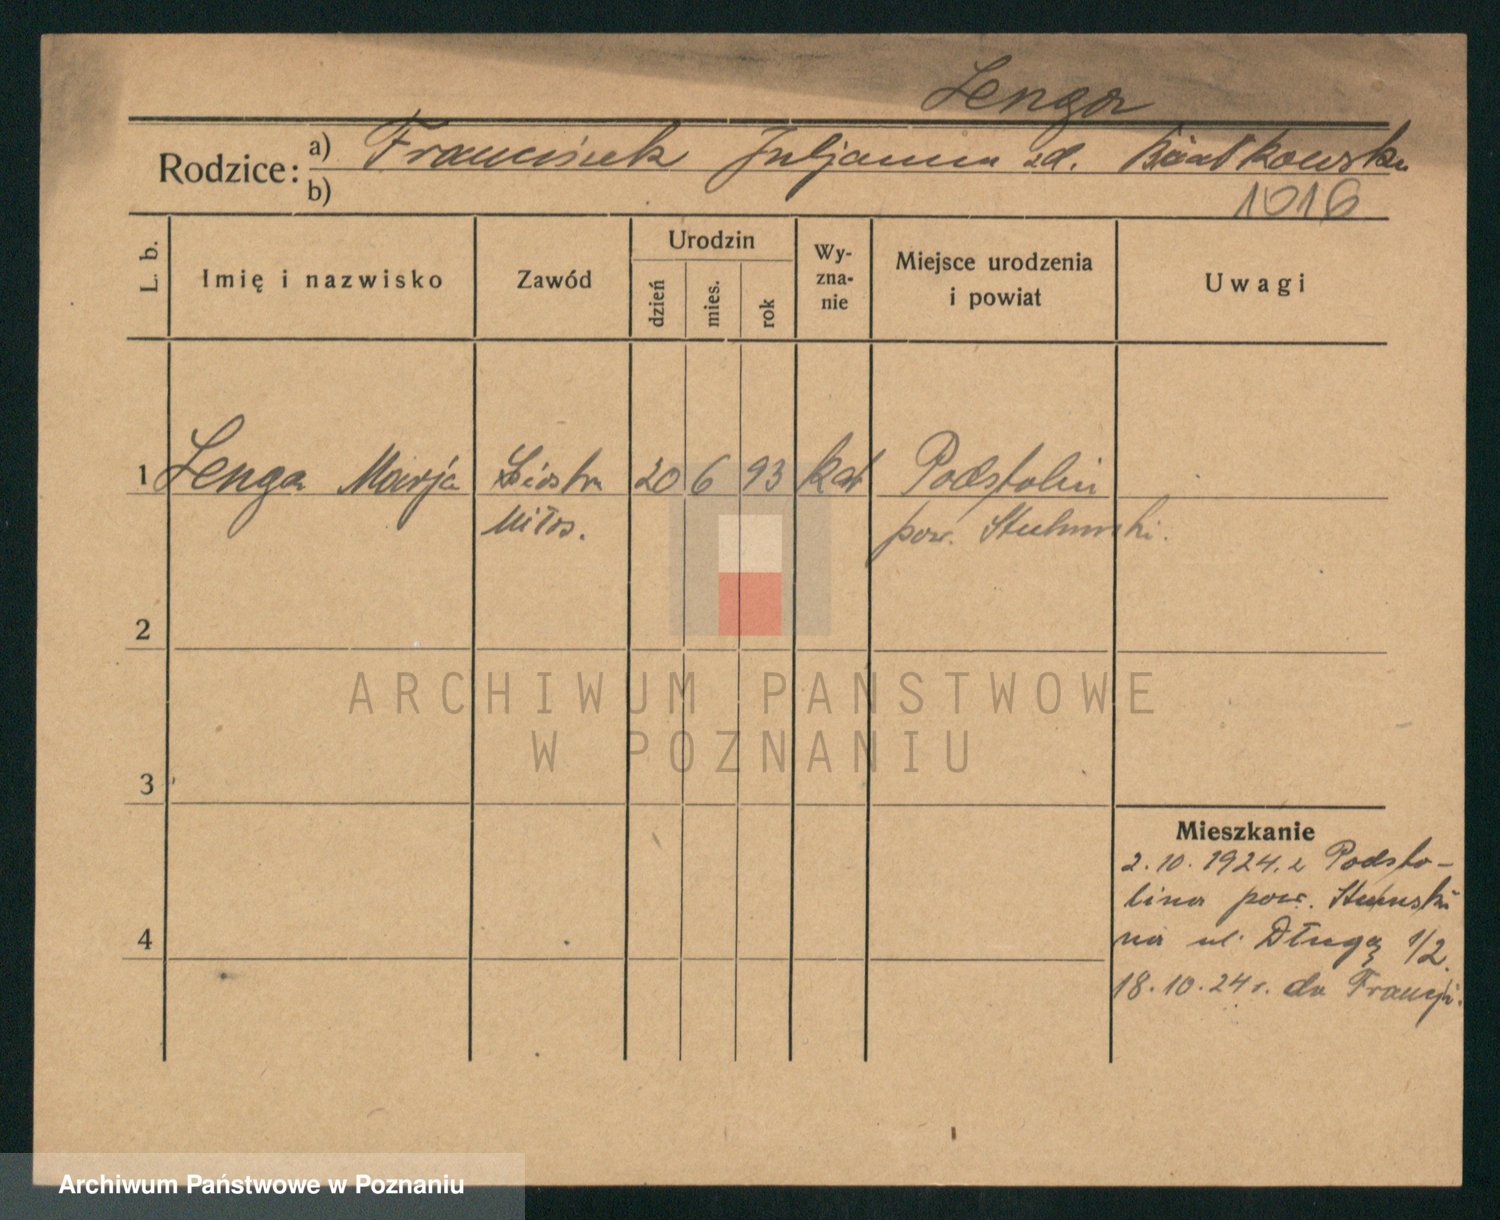 Lenga
Rodzice: a) Franciszek Juljanna zd. Białkowska
b)
1016
L. b. Imię i nazwisko Zawód Urodzin dzień mies. rok Wy-zna-nie Miejsce urodzenia i powiat Uwagi
1 Lenga Marja Siostra 20 6 93 kat Podstolin
Miłos. pow. Sztumski.
2
ARCHIWUM PAŃSTWOWE
W POZNANIU
3
Mieszkanie
2.10.1924. z Podsto-
lina pow. Sztumski
4
na ul. Długą 1/2.
18.10.24 r. do Francji.
Archiwum Państwowe w Poznaniu